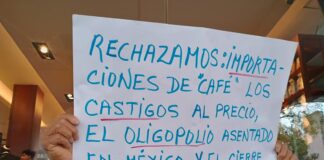 RECHAZAMOS: IMPORTA-
CIONES DE "CAFÉ" LOS
CASTIGOS AL PRECIO,
EL OLIGOPOLIO ASENTADO
EN MÉXICO Y EL CIERRE